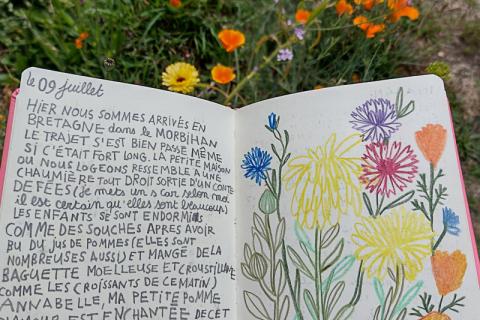 le 09 juillet
HiER NOUS SOMMES ARRIVÉS EN
BRETAGNE dans le MORBIHAN
LE TRAJET S'EST BIEN PASSÉ MÊME
Si C'ÉTAIT FORT LONG. LA PETITE MAISON
OÙ NOUS LOGEONS RESSEMBLE A UNE
CHAUMIÈRE TOUT DROIT SORTIE D'UN CONTE
DE FÉES (je mets un s car selon moi
il est certain qu'elles sont beaucoup)
LES ENFANTS SE SONT ENDORMIS
COMME DES SOUCHES APRES AVOIR
BU DU JUS DE POMMES (ELLES SONT
NOMBREUSES AUSSI) ET MANGÉ DE LA
BAGUETTE MOELLEUSE ET (CROUSTILLANE
COMME LES CROISSANTS DE CE MATIN)
ANNABELLE, MA PETITE POMME
EST ENCHANTÉE DE CET